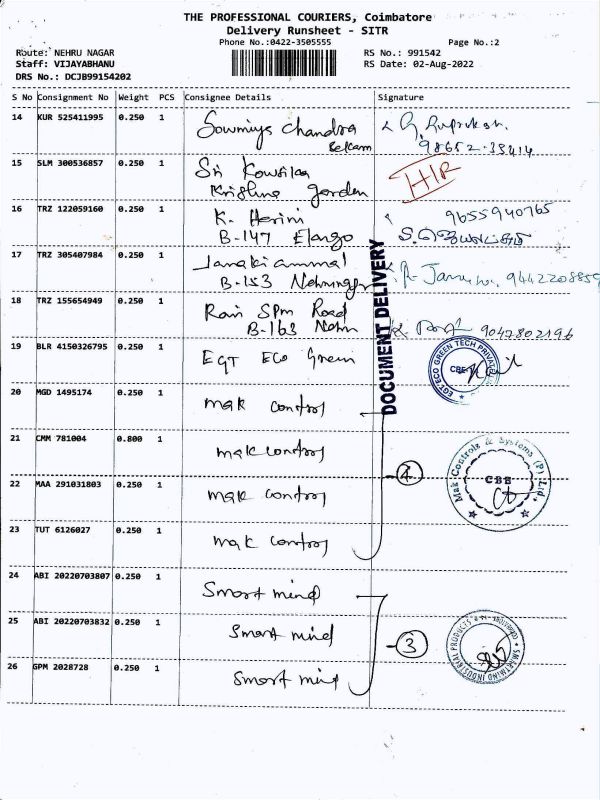 THE PROFESSIONAL COURIERS, Coimbatore
Delivery Runsheet - SITR
Phone No.:0422-3505555
Page No.:2
Route: NEHRU NAGAR
RS No.: 991542
Staff: VIJAYABHANU
RS Date: 02-Aug-2022
DRS No.: DCJB99154202
S No Consignment No Weight PCS Consignee Details Signature
14 KUR 525411995 0.250 1 Sowmiya Chandra
98652-35414
15 SLM 300536857 0.250 1 Sri Kowsika HIR
Krishna garden
16 TRZ 122059160 0.250 1 K. Harini 9655940765
B-147 Elango
17 TRZ 305407984 0.250 1 Janaki ammal
B-153 Nehrunagar 9442208859
18 TRZ 155654949 0.250 1 Ravi SPM Road
B-163 Nehru 9047802196
DOCUMENT DELIVERY
19 BLR 4150326795 0.250 1 EGT ECO Green
EGT ECO GREEN TECH PRIVATE
CBE
20 MGD 1495174 0.250 1 mak control
21 CMM 781004 0.800 1 mak control
Mak Controls & Systems (P) Ltd.,
CBE
4
22 MAA 291031803 0.250 1 mak control
23 TUT 6126027 0.250 1 mak control
24 ABI 20220703807 0.250 1 Smart mind
25 ABI 20220703832 0.250 1 Smart mind
3
SMARTMIND INDUSTRIAL PRODUCTS
26 GPM 2028728 0.250 1 Smart mind